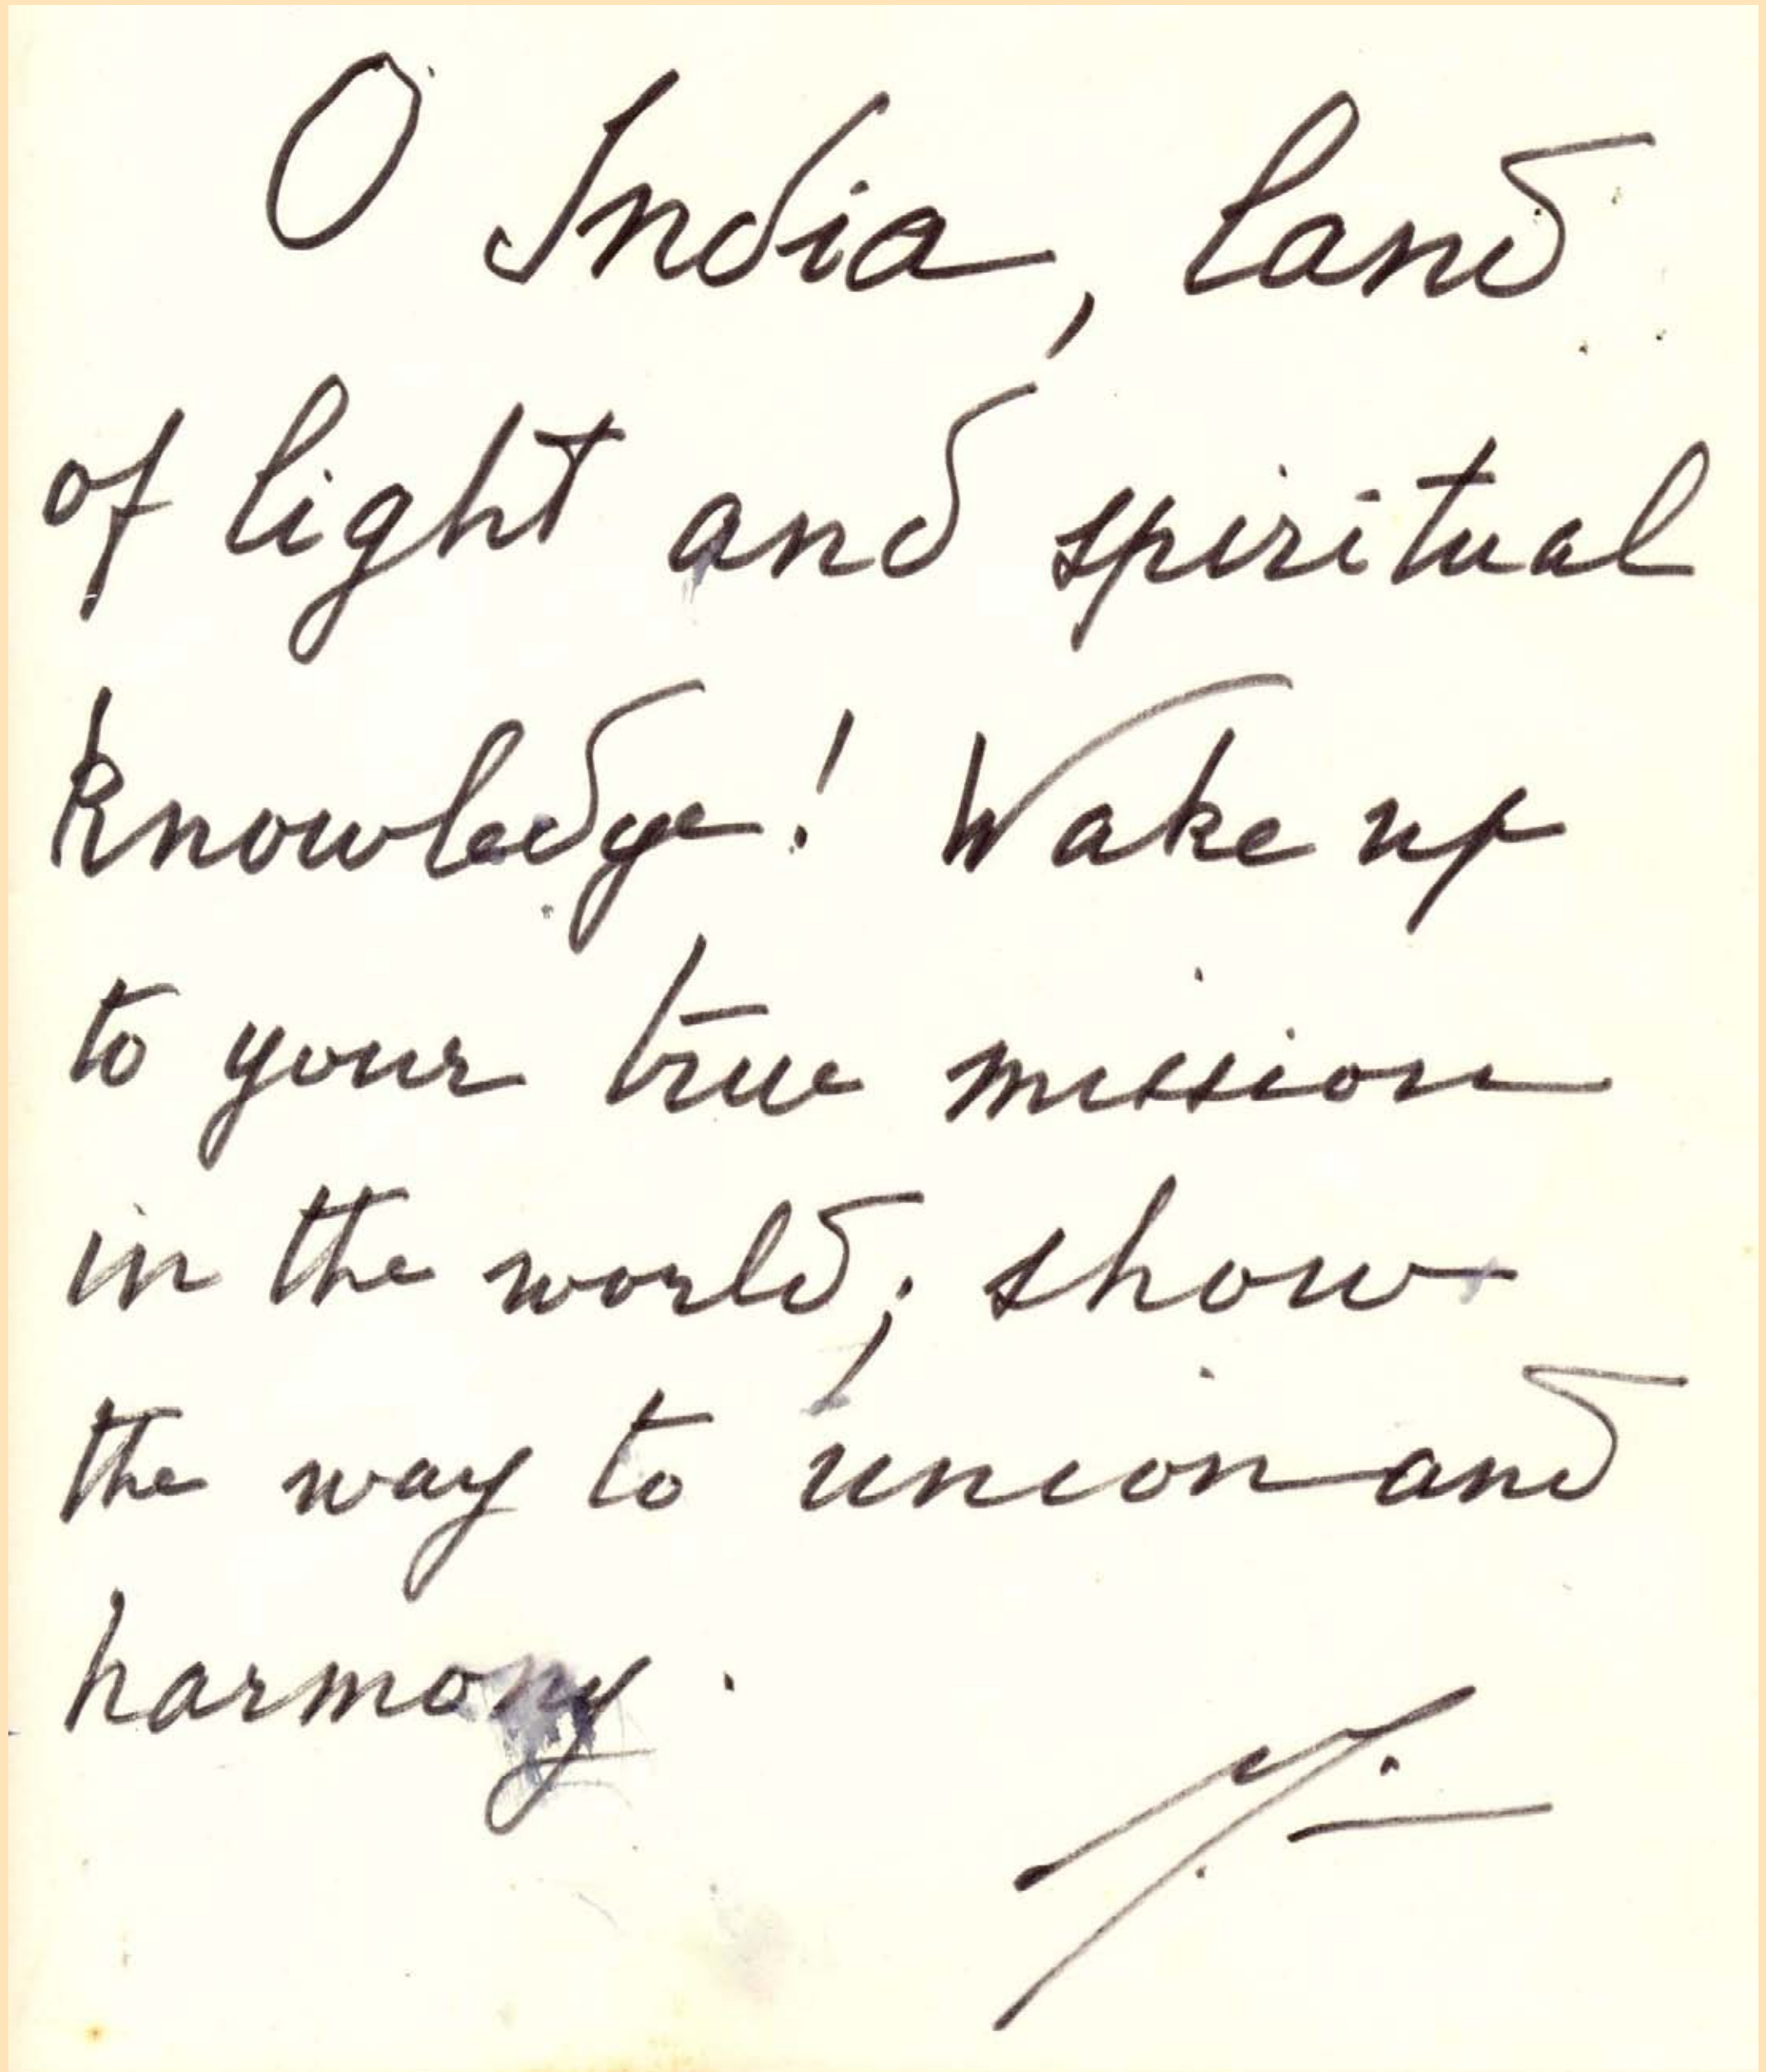 O India, land
of light and spiritual
knowledge! Wake up
to your true mission
in the world; show
the way to union and
harmony.